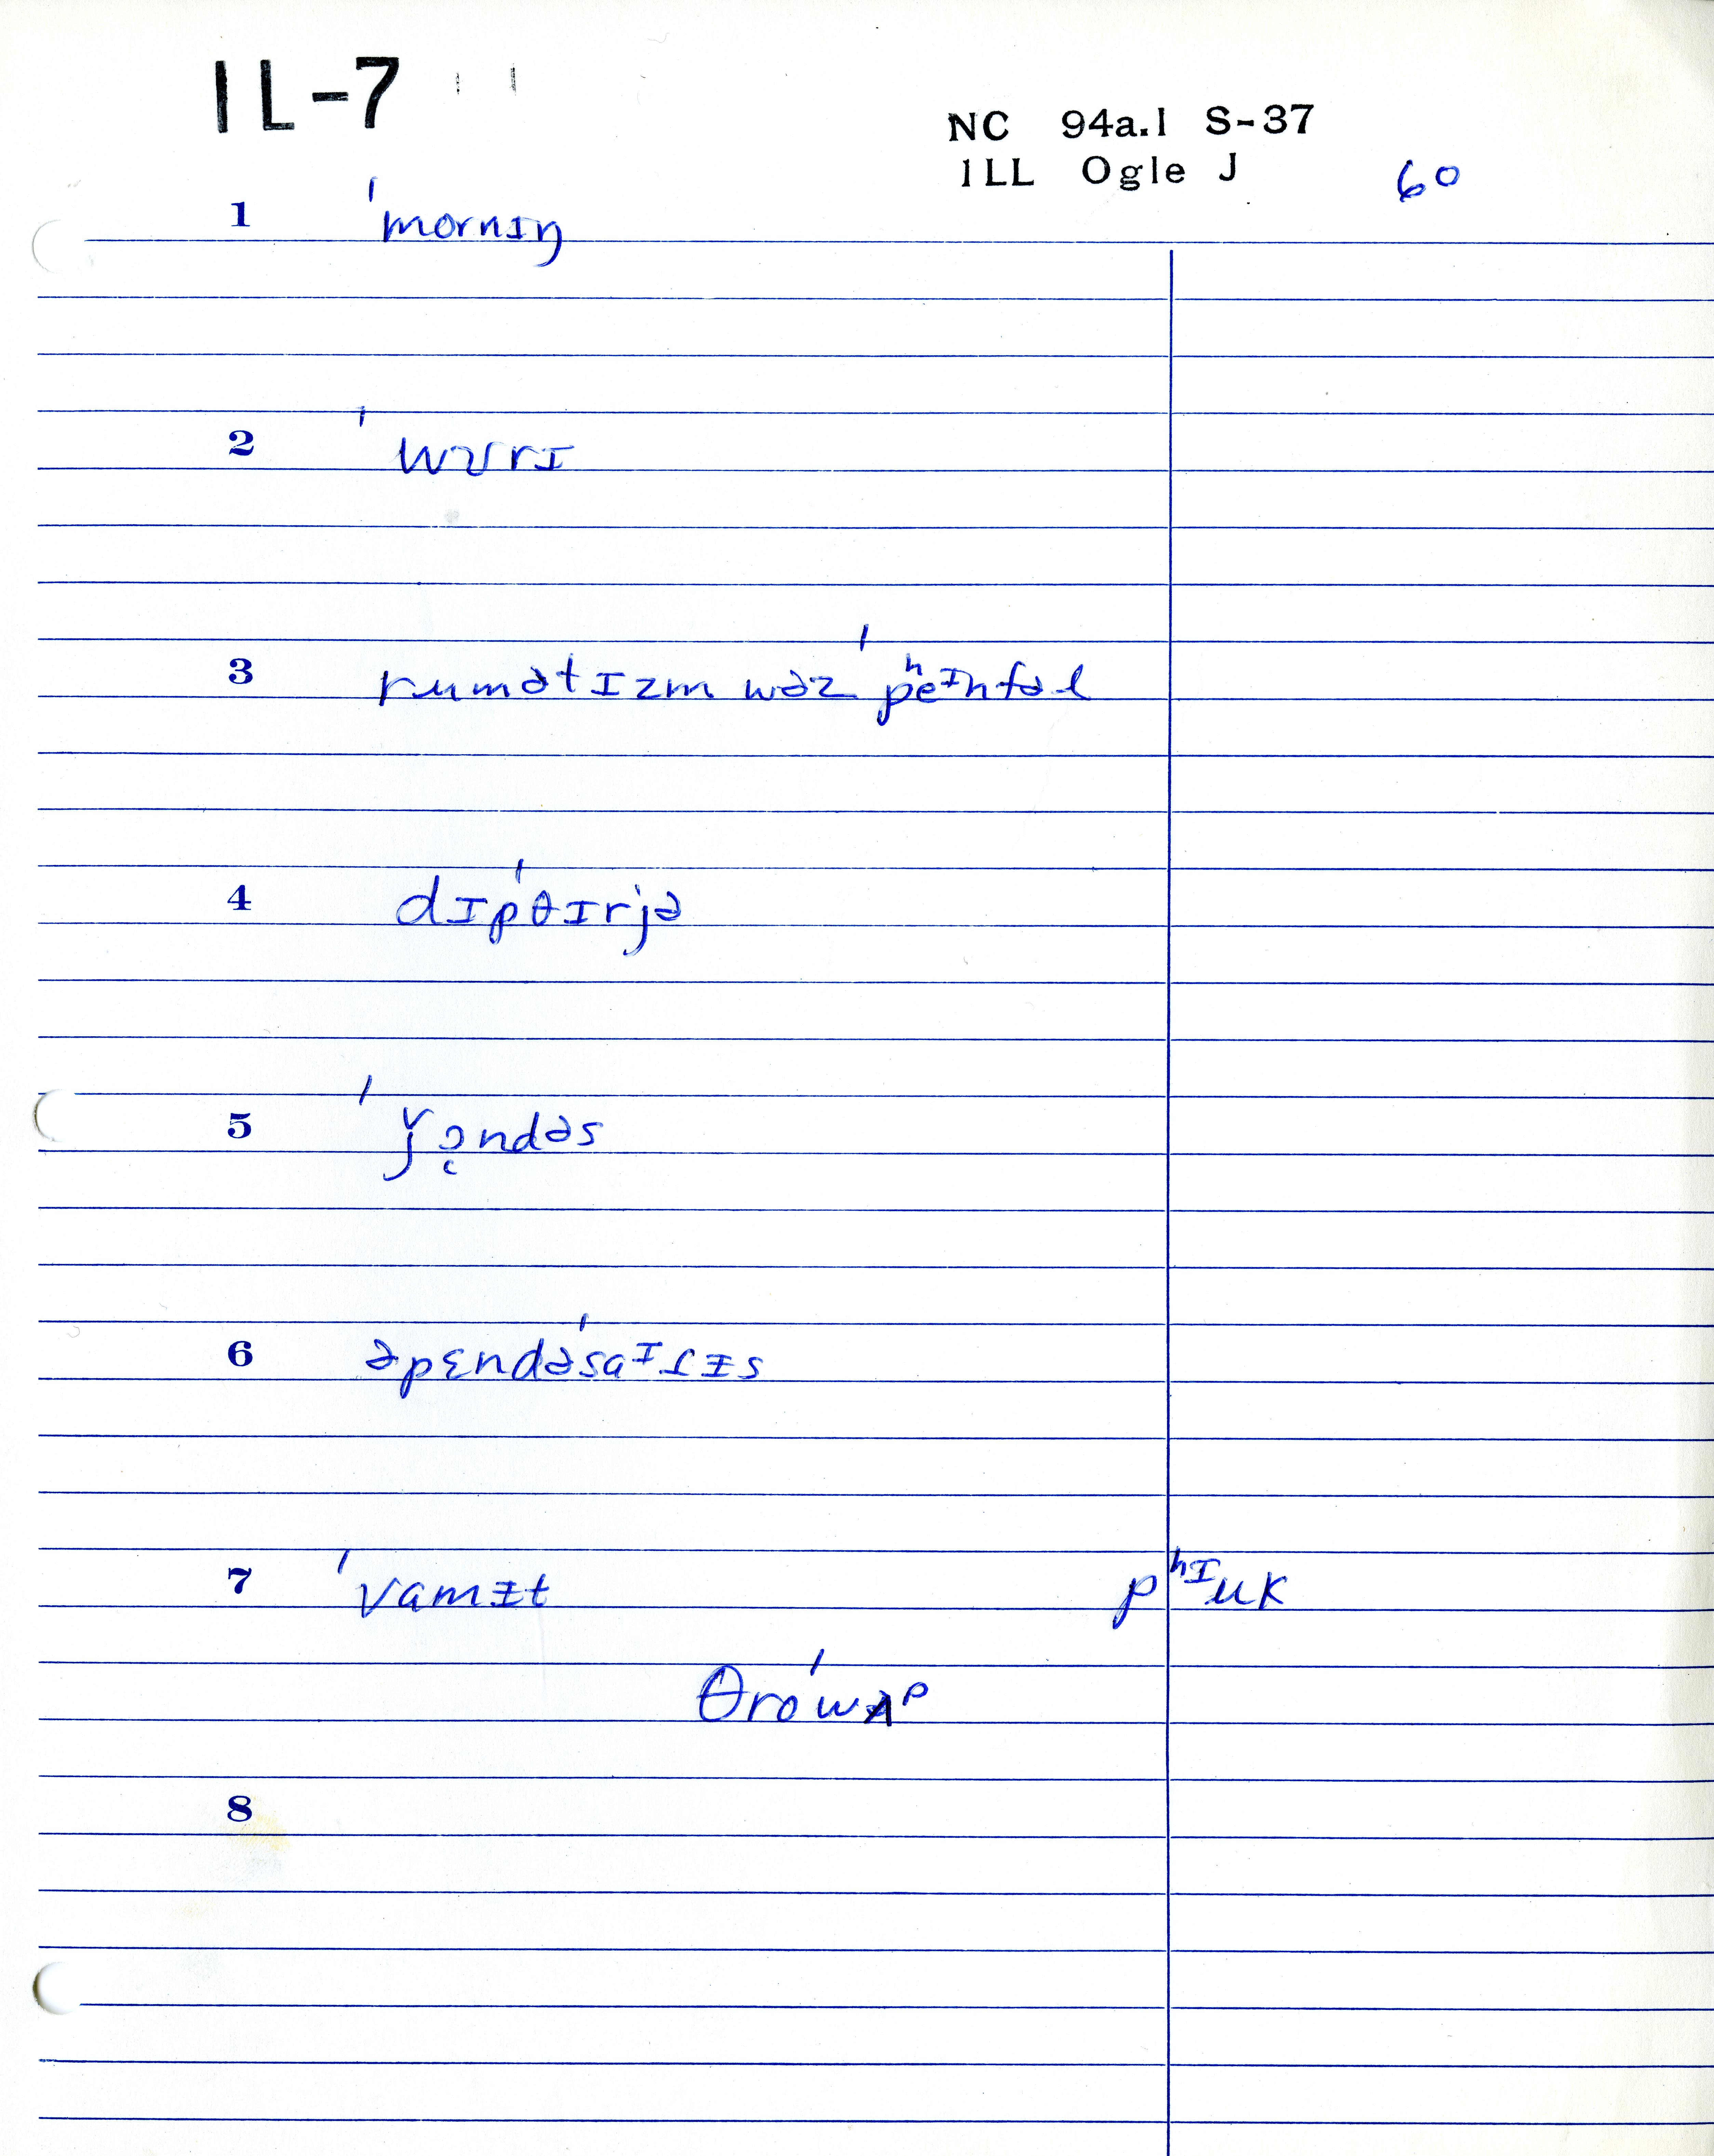 IL-7
NC 94a.1 S-37
ILL Ogle J 60
1 ˈmornɪŋ
2 ˈwɜrɪ
3 rumətɪzm wəz ˈpʰeᶦnfəl
4 dɪpˈθɪrjə
5 ˈǰɔ̜ndəs
6 əpɛndəˈsaᶦɾɨs
7 ˈvamɨt pʰᶦuk
θroˈwʌᵖ
8